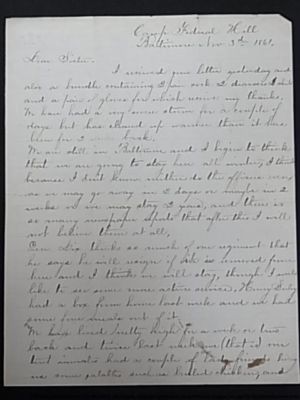 Camp Federal Hill
Baltimore Nov. 3rd 1861,
Dear Sister.
I received your letter yesterday and
also a bundle containing 2 pair sock 2 drawers 1 shirt
and a pair of gloves for which receive my thanks,
We have had a very severe storm for a couple of
days but has cleared up warmer than it has
been for a week back,
We are still in Baltimore and I begin to think
that we are going to stay here all winter, I think
because I don't know neither do the officers even,
as we may go away in 2 days or maybe in 2
weeks or we may stay 2 years, and there is
so many newspaper reports that after this I will
not believe them at all,
Gen. Dix thinks so much of our regiment that
he says he will resign if it is removed from
here and I think we will stay, though I would
like to see some more active service, Henry
had a box from home last week and we had
some fine out of it
We have lived pretty high for a week or two
back and twice last week one that is our
tent inmates had a couple of lady friends bring
us some eatables such as broiled chicken, and